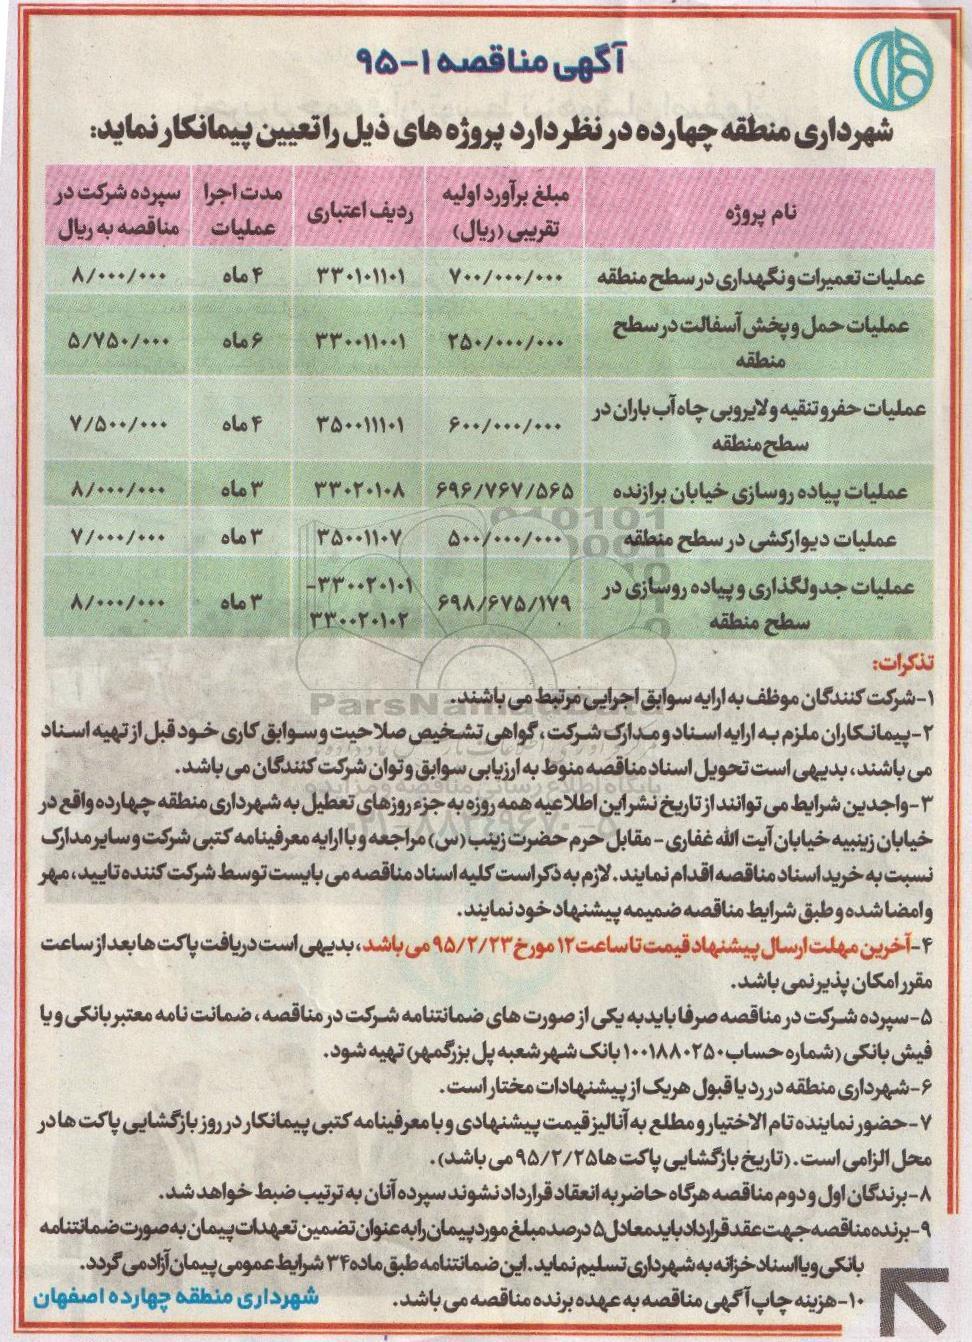 آگهی مناقصه ۱-۹۵
شهرداری منطقه چهارده در نظر دارد پروژه های ذیل را تعیین پیمانکار نماید:
نام پروژه | مبلغ برآورد اولیه تقریبی (ریال) | ردیف اعتباری | مدت اجرا عملیات | سپرده شرکت در مناقصه به ریال
عملیات تعمیرات و نگهداری در سطح منطقه | ۷۰۰/۰۰۰/۰۰۰ | ۳۳۰۱۰۱۱۰۱ | ۴ ماه | ۸/۰۰۰/۰۰۰
عملیات حمل و پخش آسفالت در سطح منطقه | ۲۵۰/۰۰۰/۰۰۰ | ۳۳۰۰۱۱۰۰۱ | ۶ ماه | ۵/۷۵۰/۰۰۰
عملیات حفر و تنقیه و لایروبی چاه آب باران در سطح منطقه | ۶۰۰/۰۰۰/۰۰۰ | ۳۵۰۰۱۱۱۰۱ | ۴ ماه | ۷/۵۰۰/۰۰۰
عملیات پیاده روسازی خیابان برازنده | ۶۹۶/۷۶۷/۵۶۵ | ۳۳۰۲۰۱۰۸ | ۳ ماه | ۸/۰۰۰/۰۰۰
عملیات دیوارکشی در سطح منطقه | ۵۰۰/۰۰۰/۰۰۰ | ۳۵۰۰۱۱۰۷ | ۳ ماه | ۷/۰۰۰/۰۰۰
عملیات جدولگذاری و پیاده روسازی در سطح منطقه | ۶۹۸/۶۷۵/۱۷۹ | ۳۳۰۰۲۰۱۰۱-۳۳۰۰۲۰۱۰۲ | ۳ ماه | ۸/۰۰۰/۰۰۰
تذکرات:
۱-شرکت کنندگان موظف به ارایه سوابق اجرایی مرتبط می باشند.
۲-پیمانکاران ملزم به ارایه اسناد و مدارک شرکت، گواهی تشخیص صلاحیت و سوابق کاری خود قبل از تهیه اسناد
می باشند، بدیهی است تحویل اسناد مناقصه منوط به ارزیابی سوابق و توان شرکت کنندگان می باشد.
۳-واجدین شرایط می توانند از تاریخ نشر این اطلاعیه همه روزه به جزء روزهای تعطیل به شهرداری منطقه چهارده واقع در
خیابان زینبیه خیابان آیت الله غفاری - مقابل حرم حضرت زینب (س) مراجعه و با ارایه معرفینامه کتبی شرکت و سایر مدارک
نسبت به خرید اسناد مناقصه اقدام نمایند. لازم به ذکر است کلیه اسناد مناقصه می بایست توسط شرکت کننده تایید، مهر
و امضا شده و طبق شرایط مناقصه ضمیمه پیشنهاد خود نمایند.
۴-آخرین مهلت ارسال پیشنهاد قیمت تا ساعت ۱۲ مورخ ۹۵/۲/۲۳ می باشد، بدیهی است دریافت پاکت ها بعد از ساعت
مقرر امکان پذیر نمی باشد.
۵-سپرده شرکت در مناقصه صرفا باید به یکی از صورت های ضمانتنامه شرکت در مناقصه، ضمانت نامه معتبر بانکی و یا
فیش بانکی (شماره حساب ۱۰۰۱۸۸۰۲۵۰ بانک شهر شعبه پل بزرگمهر) تهیه شود.
۶-شهرداری منطقه در رد یا قبول هریک از پیشنهادات مختار است.
۷-حضور نماینده تام الاختیار و مطلع به آنالیز قیمت پیشنهادی و با معرفینامه کتبی پیمانکار در روز بازگشایی پاکت ها در
محل الزامی است. (تاریخ بازگشایی پاکت ها ۹۵/۲/۲۵ می باشد).
۸-برندگان اول و دوم مناقصه هرگاه حاضر به انعقاد قرارداد نشوند سپرده آنان به ترتیب ضبط خواهد شد.
۹-برنده مناقصه جهت عقد قرارداد باید معادل ۵ درصد مبلغ مورد پیمان را به عنوان تضمین تعهدات پیمان به صورت ضمانتنامه
بانکی و یا اسناد خزانه به شهرداری تسلیم نماید. این ضمانتنامه طبق ماده ۳۴ شرایط عمومی پیمان آزاد می گردد.
۱۰-هزینه چاپ آگهی مناقصه به عهده برنده مناقصه می باشد.
شهرداری منطقه چهارده اصفهان